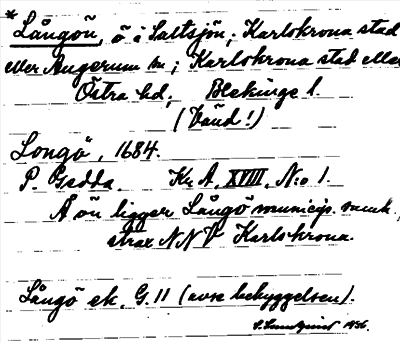 * Långön, ö i Saltsjön; Karlskrona stad
eller Augerum sn; Karlskrona stad eller
Östra hd; Blekinge l.
(Vänd!)
Longö, 1684.
P. Gedda. Kr A, XVIII, N:o 1.
Å ön ligger Långö municip. samh.,
strax NNV Karlskrona.
Långö ek. G. 11 (avse bebyggelsen).
S. Lundqvist 1936.